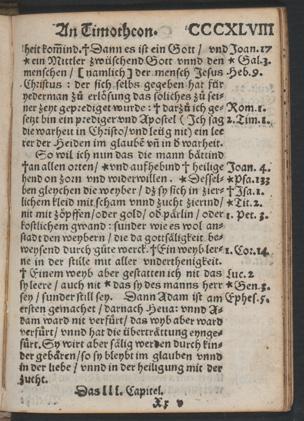 An Timotheon. CCCXLVIII
heit kommd. † Dann es ist ein Gott / vnd Joan. 17
* ein Mittler zwüschend Gott vnnd den * Gal. 3.
menschen / [namlich] der mensch Jesus Heb. 9.
Christus : der sich selbs gegeben hat für
yederman zů erlösung das söliches zů sei-
ner zeyt gepredigt wurde : † darzů ich ge- Rom. 1.
setzt bin ein prediger vnd Apostel ( Ich sag 2. Tim. 1.
die warheit in Christo / vnd leüg nit) ein lee
rer der Heiden im glaubē vñ in d warheit.
So wil ich nun das die mann bättind
† an allen orten / * vnd aufhebind † heilige Joan. 4.
hend on zorn vnd widerwillen. * Dessel- * Psa. 133
ben gleychen die weyber / dz sy sich in zier- † Jsa. 1.
lichem kleid mit scham vnnd zucht zierind / * Tit. 2.
nit mit zöpffen / oder gold / od pärlin / oder 1. Pet. 3.
kostlichem gwand : sunder wie es wol an-
stadt den weybern / die da gottsäligkeit be-
weysend durch gůte werck. † Ein weyb ler- 1. Cor. 14.
ne in der stille mit aller vnderthenigkeit.
† Einem weyb aber gestatten ich nit das Luc. 2.
sy leere / auch nit * das sy des manns herr * Gen. 3.
sey / sunder still sey. Dann Adam ist am Ephes. 5.
ersten gemachet / darnach Heua: vnnd A-
dam ward nit verfürt / das wyb aber ward
verfürt / vnnd hat die überträttung eynge-
fürt. Sy wirt aber sälig werden durch kin-
der gebären / so sy bleybt im glauben vnnd
in der liebe / vnnd in der heiligung mit der
zucht.
Das III. Capitel.